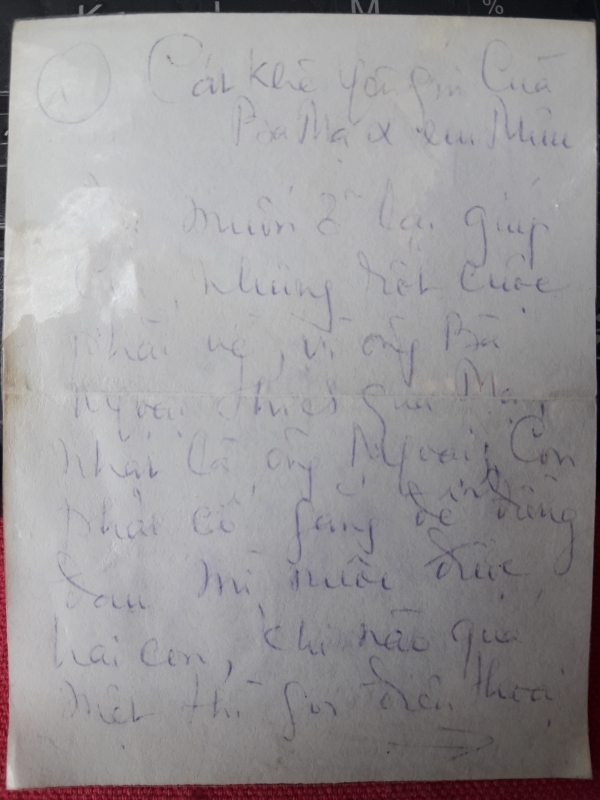 1 Cát Khê yêu quí Của
Bà Mạ & em Miêu
muốn ở lại giúp
nhưng rốt cuộc
phải về, vì ông Bà
Ngoại thiếu quá Mạ,
nhất là ông Ngoại, Con
phải cố gắng để đừng
đau mì nuôi được
hai con, khi nào quá
mệt thì gọi điện thoại